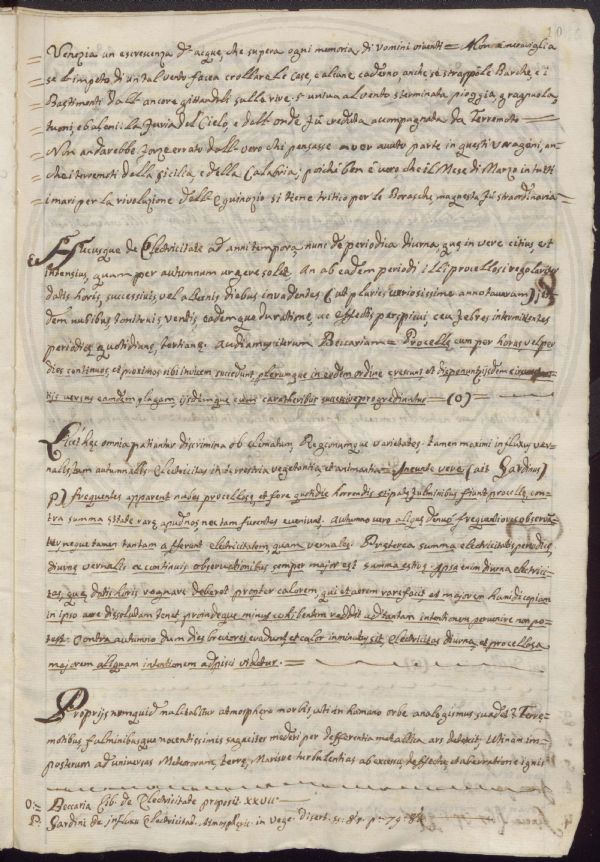 Venezia un escrescenza d'acque, che supera ogni memoria di uomini viventi = Non è meraviglia
se l'impeto di un tal vento facea crollare le Case, e alcune caderno, anche se strappò le Barche, e i
Bastimenti dall'ancore gittandoli sulle rive. S'univa al vento sterminata pioggia, gragnuola,
tuoni, e baleni: la furia del Cielo, e dell'onde fù creduta accompagnata da Terremoto
Non andarebbe forse errato dall vero che pensasse aver avuto parte in questi Uragani, an-
che i terremoti della Sicilia, e della Calabria; poichè ben è vero che il Mese di Marzo in tutti
i mari per la rivoluzione dell'Equinozio si tiene tristo per le Borasche, ma questa fù straordinaria =
Hucusque de Electricitate ad anni tempora, nunc de periodica diurna, quę in vere citius, et
intensius, quam per autumnum urgere solet. An ab eadem periodi illi procellosi regolariter
datis horis, successivis, vel alternis diebus invadentes (ut pluries curiosissime annotaveram) ii-
dem nubibus tonitruis ventis eademque duratione, ac effectis perspicui, ceu febres intermittentes
periodicę quotidianę, tertianę. Audiamus iterum Beccariam = Procellę cum per horas vel per
dies continuos, et proximos sibi invicem succedunt, plerumque in eodem ordine
versus eamdem plagam, iisdemque cum caracteribus progrediuntur = (o) =
Licet hęc omnia patiantur discrimina ob climatum, Regionumque varietates; tamen maximi influxus ver-
nalis, tam autumnalis Electricitas in terrestria vegetantia et animantia = Ineunte vere (ait Gardinus)
p) frequentes apparent nubes procellosę, et fere quotidie horrendis stipatę fulminibus fiunt procellę, con-
tra summa Estate rarę apud nos nec tam furentes eveniunt. Autumno vero aliquę denuo frequentiores observan-
tur, neque tamen tantam afferunt electricitatem, quam vernales. Pręterea summa electricitatis periodicę
diurnę vernalis ex continuis observationibus semper major est summa estivę. Ipsa enim diurna electrici-
tas, quę datis horis regnare deberet propter calorem, qui et aerem rarefacit et majorem humidi copiam
in ipso aere dissolutam tenet, proindeque minus cohibentem reddit, ad tantam intentionem pervenire non po-
test. Contra autumno dum dies breviores evadunt, et calor imminutus sit, electricitas diurna, et procellosa
majorem aliquam intentionem adipisci videtur. =
Proprijs numquid malis atmosphera morbis, uti in humano orbe analogismus suadet? Terrę-
motibus fulminibusque nocentissimis sagaciter mederi per defferentia metallica ars detexit. Utinam im-
posterum ad universas Meteororum, terrę, Marisve turbulentias ab excessu, defectu, et aberratione ignis
O: = Beccaria Lib. de Electricitate proposit. XXVII.
P. Gardini de influxu Electricitat. Atmospheric. in vege. Disert. p: 79. 84